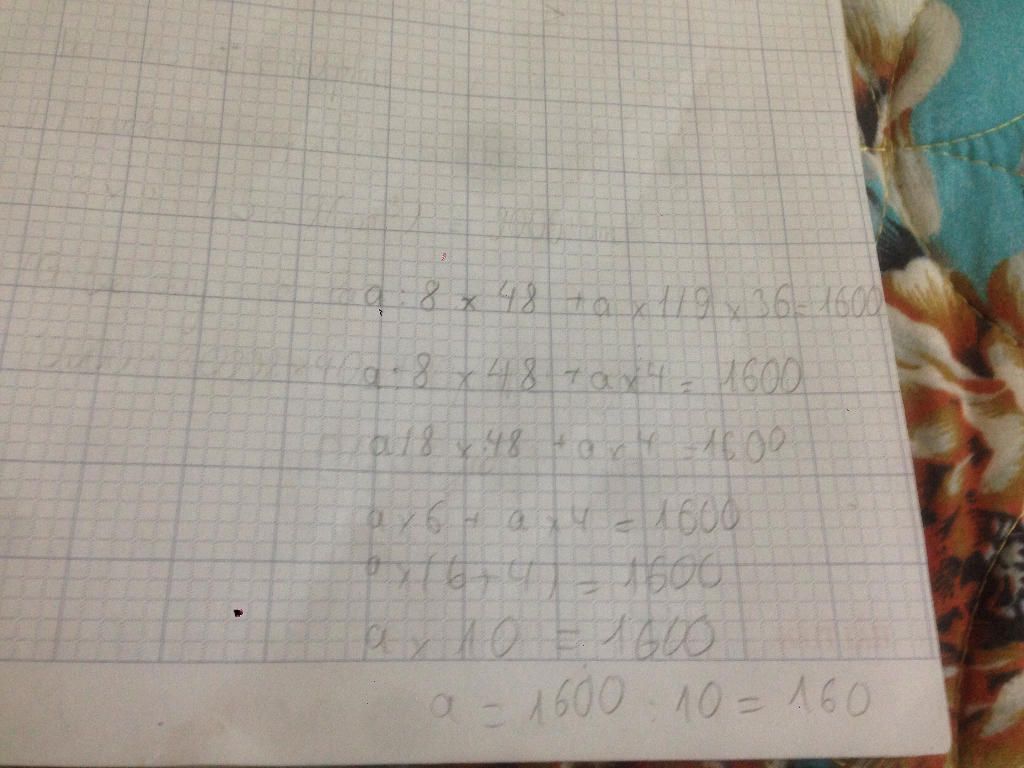 a : 8 x 48 + a x 1/9 x 36 = 1600
a : 8 x 48 + a x 4 = 1600
a / 8 x 48 + a x 4 = 1600
a x 6 + a x 4 = 1600
a x (6 + 4) = 1600
a x 10 = 1600
a = 1600 : 10 = 160